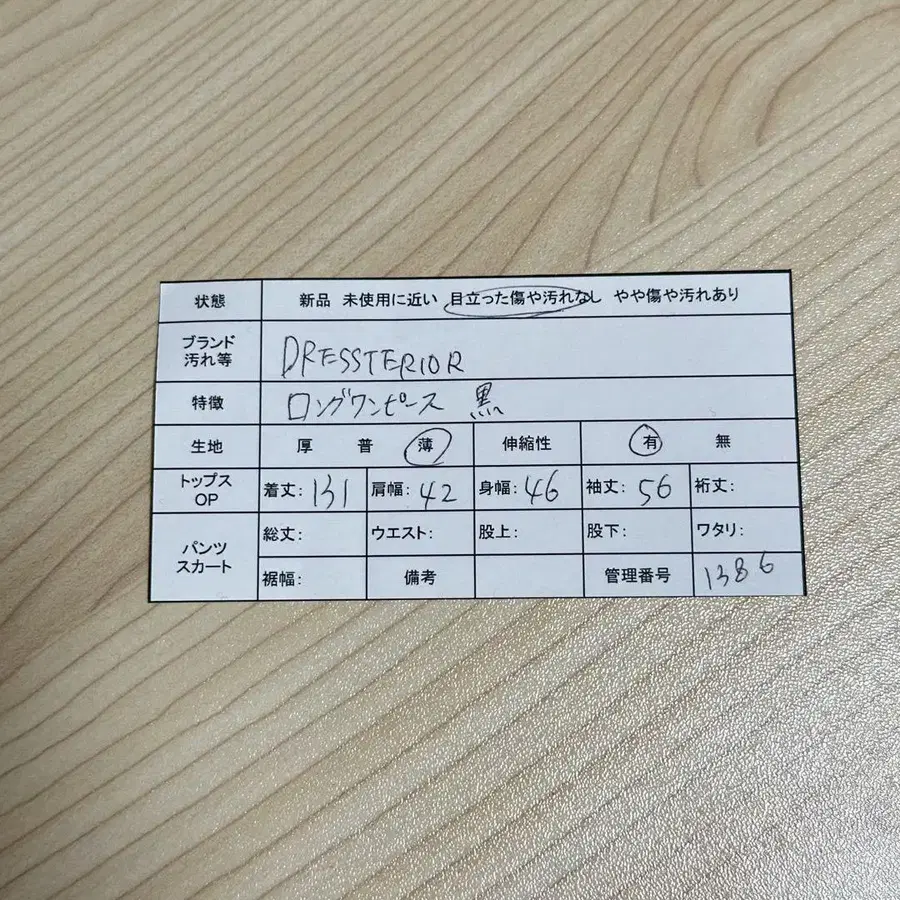 状態 新品 未使用に近い 目立った傷や汚れなし やや傷や汚れあり
ブランド
汚れ等 DRESSTERIOR
特徴 ロングワンピース 黒
生地 厚 普 薄 伸縮性 有 無
トップス
OP 着丈: 131 肩幅: 42 身幅: 46 袖丈: 56 裄丈:
パンツ
スカート 総丈: ウエスト: 股上: 股下: ワタリ:
裾幅: 備考 管理番号 1386